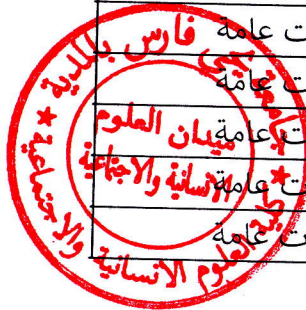 ت عامة
عامة
ت عامة
ت عامة
ت عامة
جامعة يحي فارس بالمدية
كلية العلوم الانسانية والاجتماعية
ميدان العلوم
الانسانية والاجتماعية